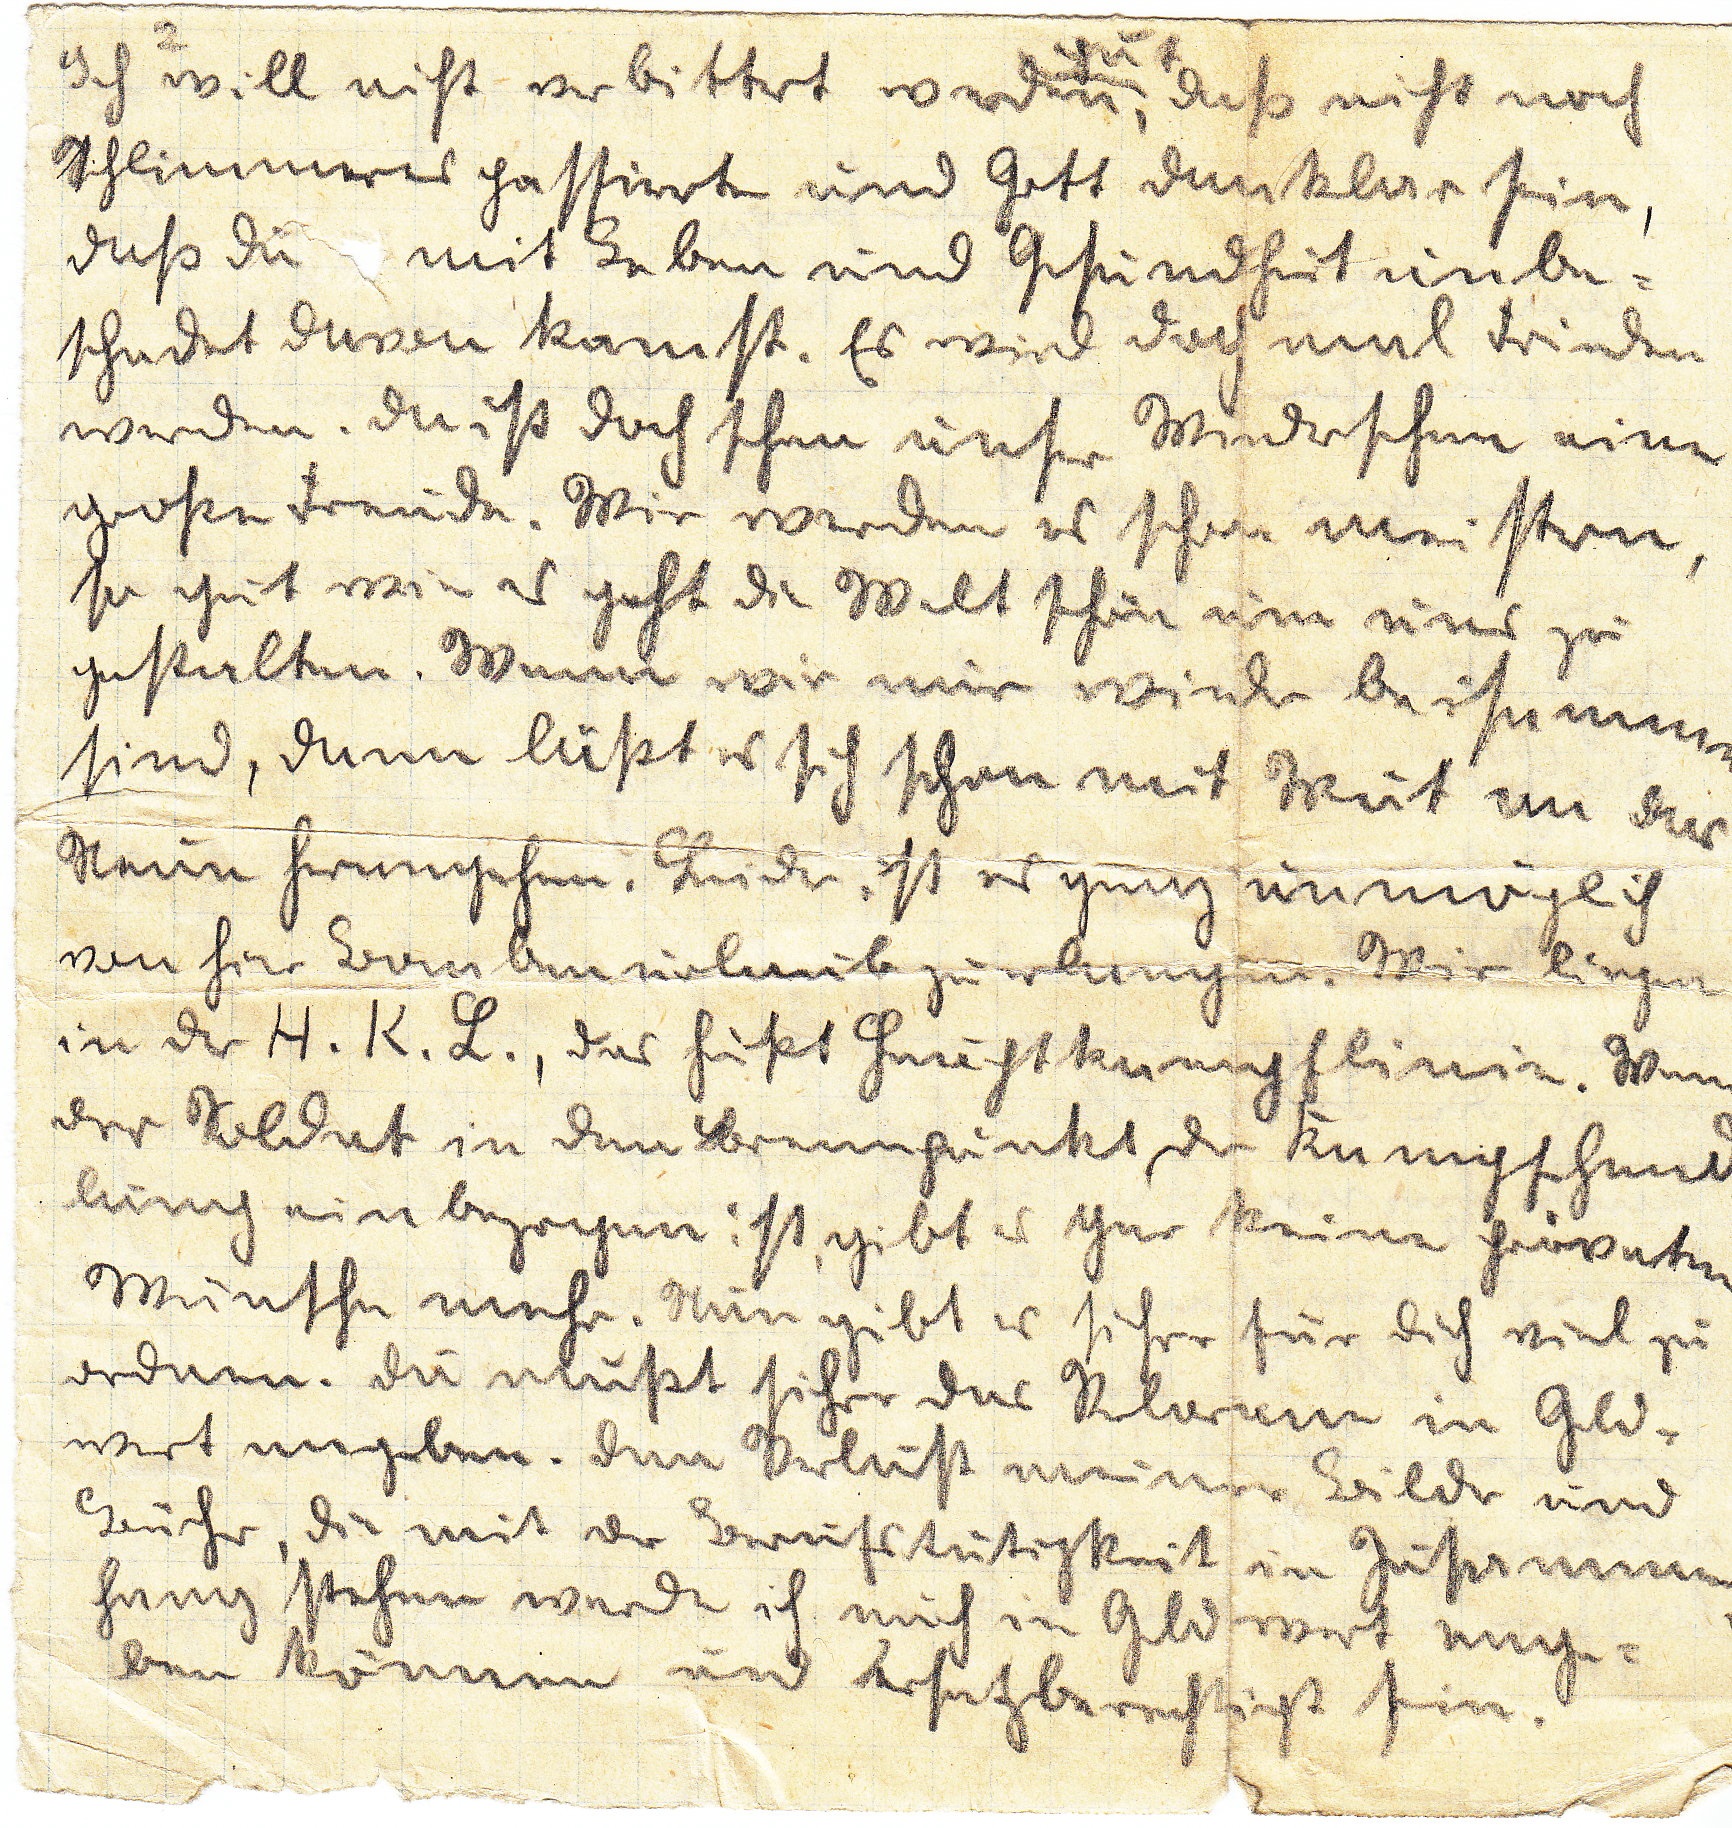 2
Ich will nicht verbittert werden, daß nicht noch
Schlimmeres passierte und Gott dankbar sein,
daß du mit Leben und Gesundheit unbe=
schadet davon kamst. Es wird doch mal Frieden
werden. Da ist doch schon unser Wiedersehen eine
große Freude. Wir werden es schon meistern,
so gut wie es geht die Welt schön um uns zu
gestalten. Wenn wir nur wieder beisammen
sind, dann läßt es sich schon mit Mut an das
Neue herangehen. Leider ist es ganz unmöglich
von hier Bombenurlaub zu erlangen. Wir liegen
in der H.K.L., das heißt Hauptkampflinie. Wenn
der Soldat in den Brennpunkt der Kampfhand
lung einbezogen ist, gibt es gar keine privaten
Wünsche mehr. Nun gibt es sicher für dich viel zu
ordnen. Du mußt sicher das Verlorene in Geld=
wert angeben. Den Verlust meiner Bilder und
Bücher, die mit der Berufstätigkeit in Zusammen
hang stehen werde ich auch in Geldwert ange=
ben können und ersatzberechtigt sein.